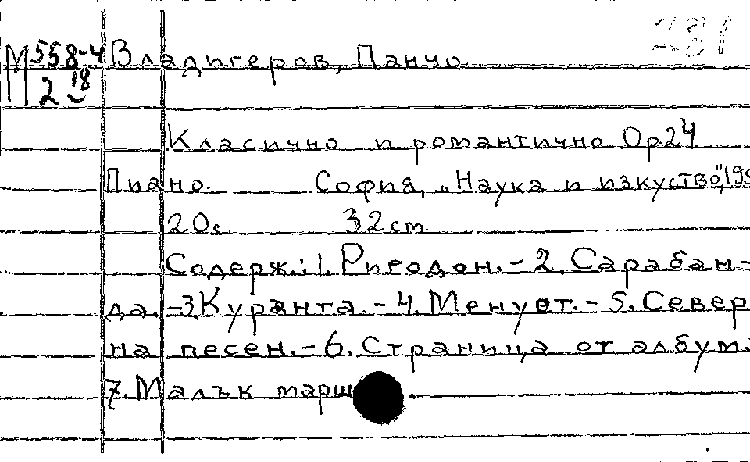 М 558-4 Владигеров, Панчо
2 18
Класично и романтично Ор24
Пиано. София, „Наука и изкуство",
20с 32cm
Содерж.: 1. Ригодон. - 2. Сарабан-
да. - 3. Куранта. - 4. Менует. - 5. Север
на песен. - 6. Страница от албум.
7. Малък марш